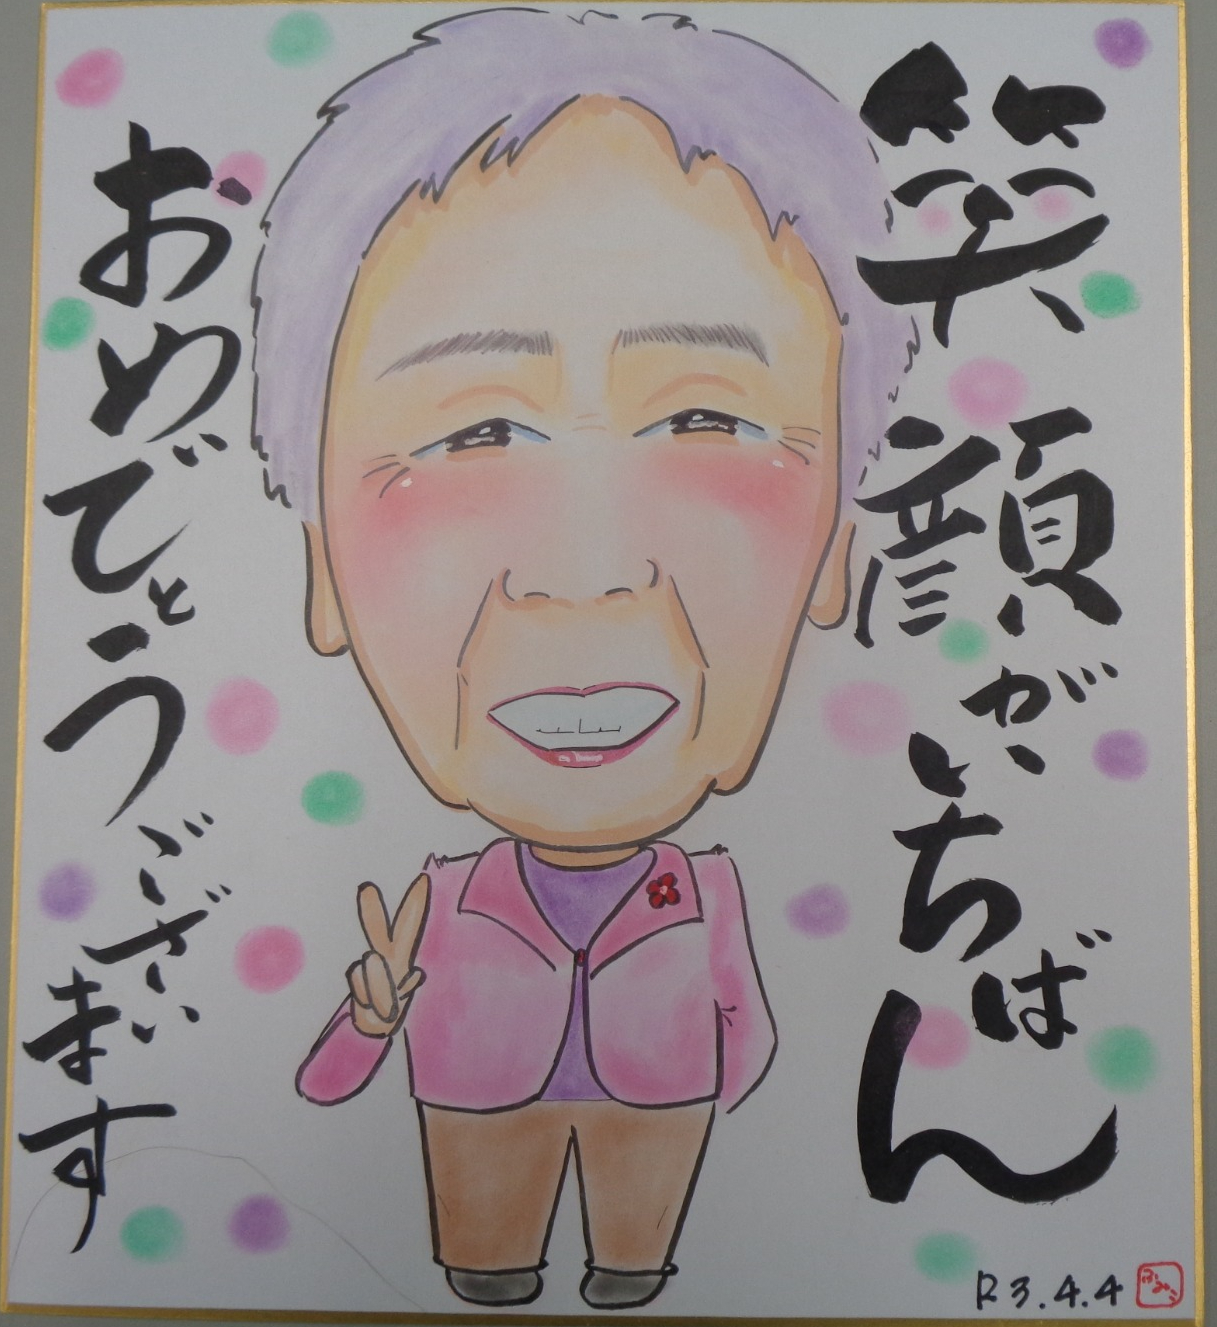 笑顔がいちばん
おめでとうございます
R3.4.4